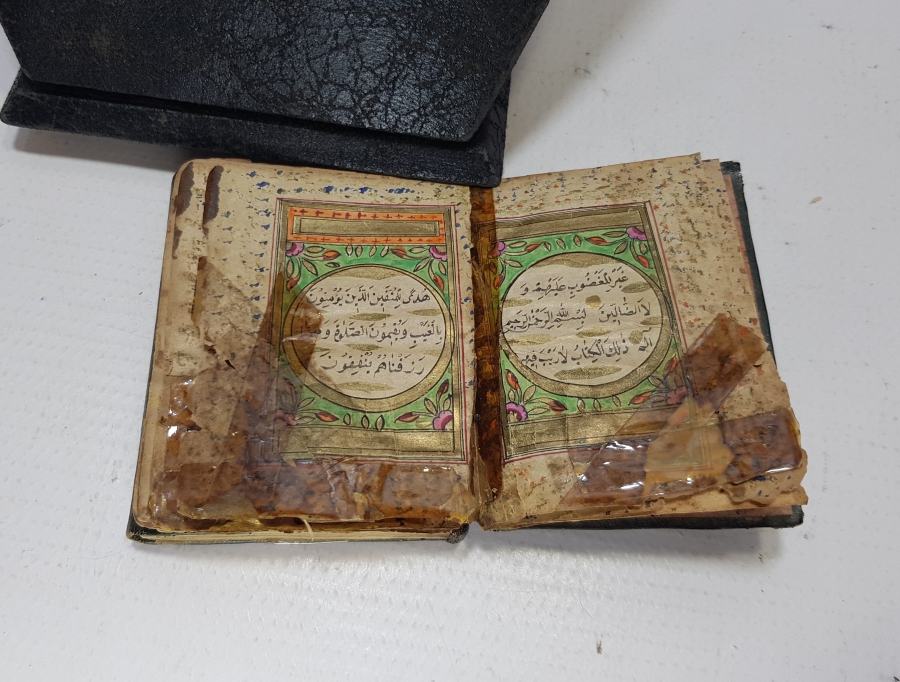 غَيْرِ الْمَغْضُوبِ عَلَيْهِمْ وَ
لَا الضَّالِّينَ بِسْمِ اللهِ الرَّحْمٰنِ الرَّحِيمِ
الٓمٓ ذٰلِكَ الْكِتَابُ لَا رَيْبَ فِيهِ
هُدًى لِلْمُتَّقِينَ الَّذِينَ يُؤْمِنُونَ
بِالْغَيْبِ وَيُقِيمُونَ الصَّلٰوةَ
رَزَقْنَاهُمْ يُنْفِقُونَ